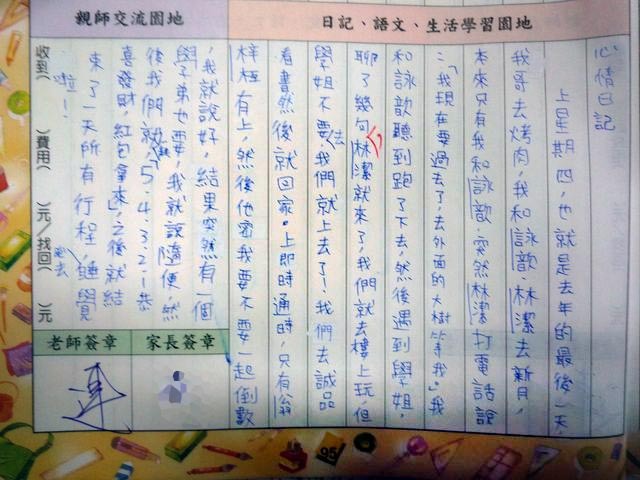 親師交流園地
日記、語文、生活學習園地
心情日記
上星期四,也就是去年的最後一天,
我哥去烤肉,我和詠歆林潔去新月,
本來只有我和詠歆,突然林潔打電話說
:「我現在要過去了,去外面的大樹等我。」我
和詠歆聽到跑了下去,然後遇到學姐,
聊了幾句林潔就來了,我們就去樓上玩但
學姐不要去,我們就上去了!我們去誠品
看書然後就回家。上即時通時,只有翁
梓極有上,然後他密我要不要一起倒數
,我就說好,結果突然有一個
學弟也要,我就說隨便,然
後我們就數5.4.3.2.1恭
喜發財,紅包拿來」,之後就結
束了一天所有行程,去睡覺
啦!
收到( )費用( )元/找回( )元
老師簽章
家長簽章
95